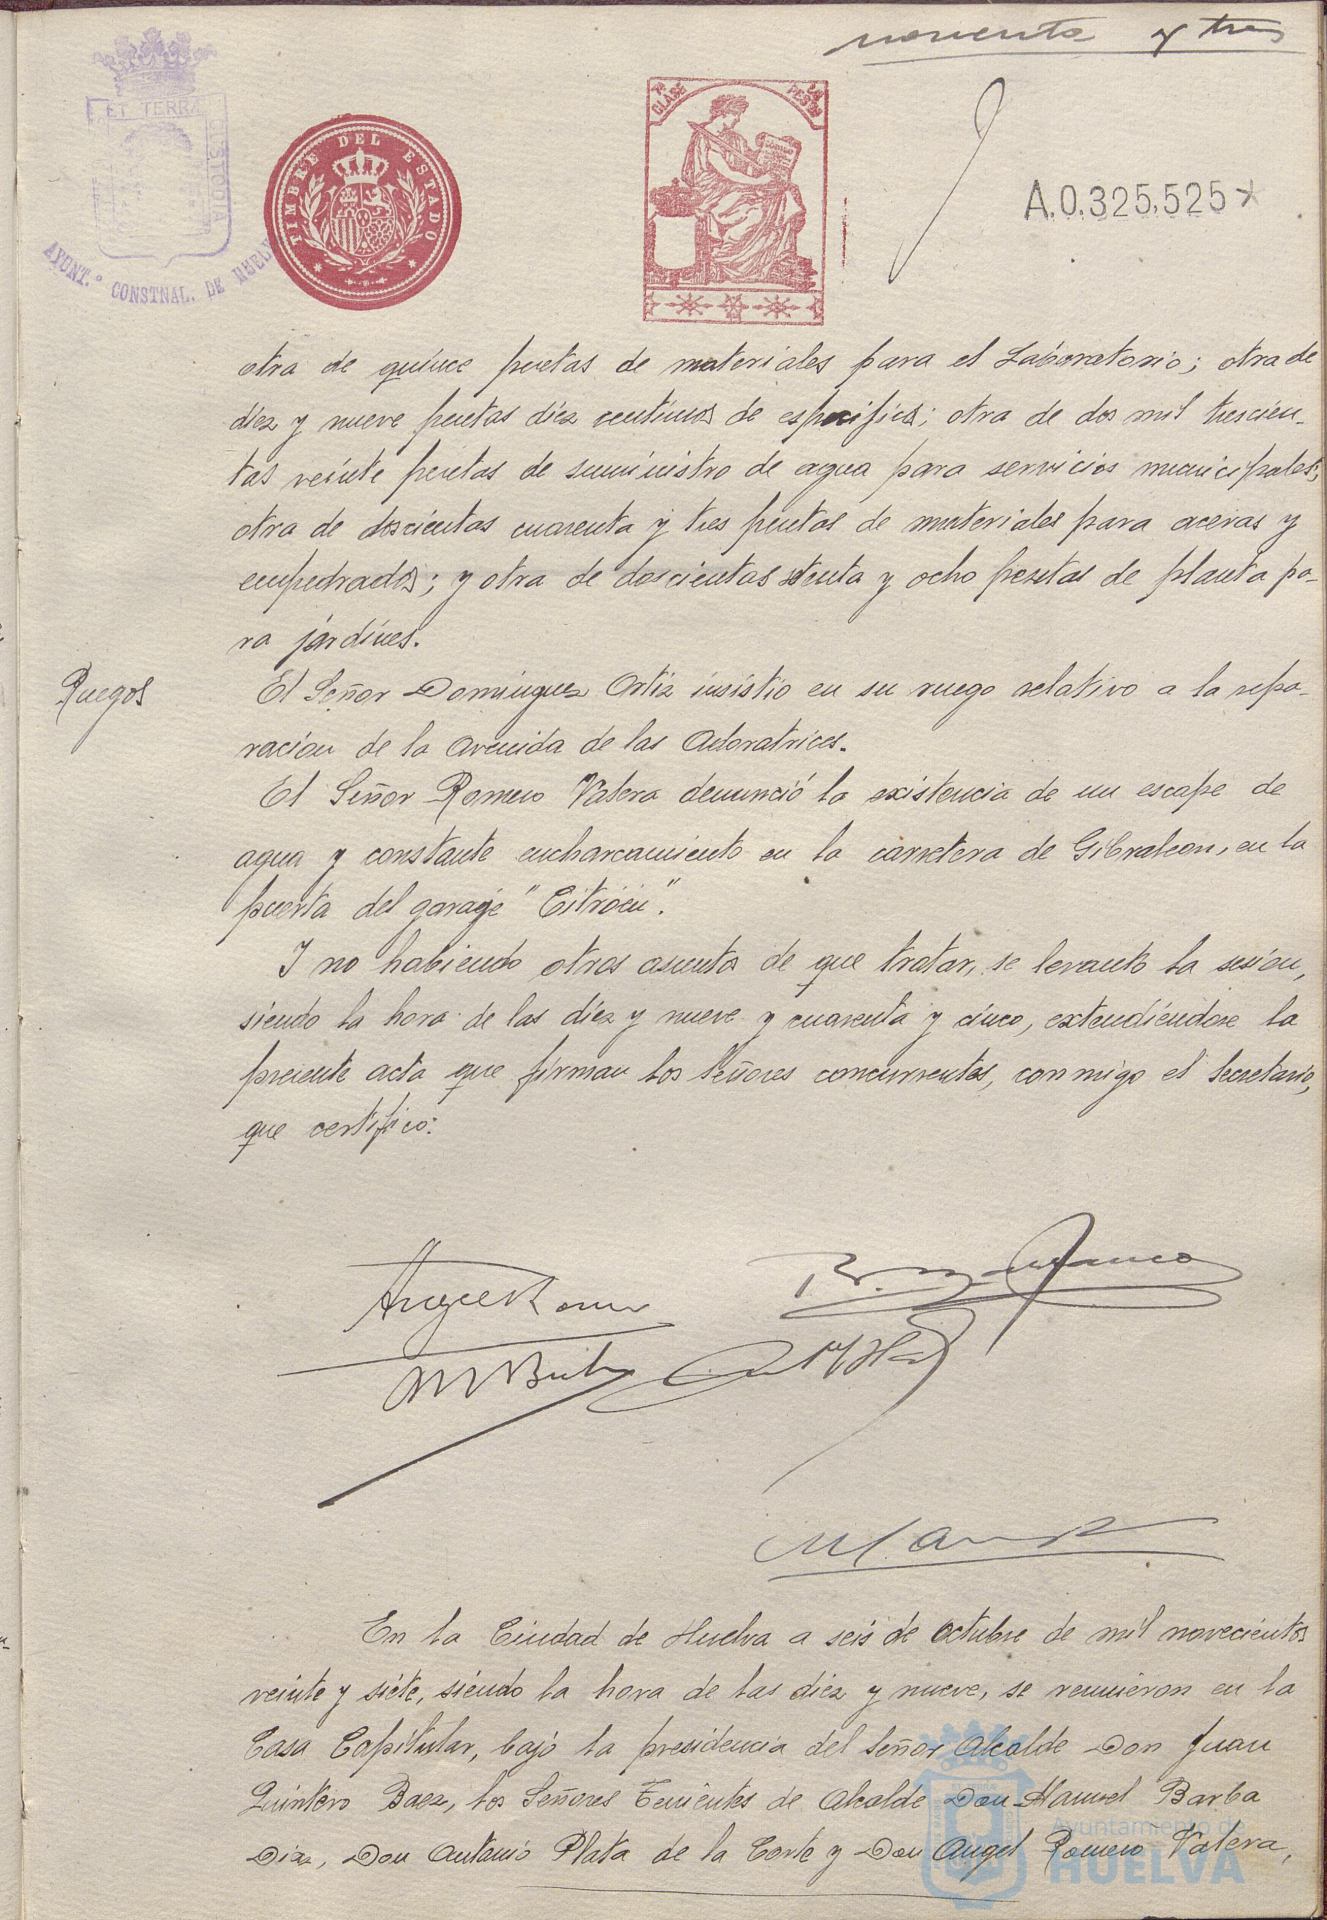 noventa y tres
ET TERRÆ
CUSTODIA
AYUNT.º CONSTNAL. DE HUELVA
TIMBRE DEL ESTADO
7ª CLASE
PESETAS
A.0.325,525*
otra de quince pesetas de materiales para el Laboratorio; otra de
diez y nueve pesetas diez centimos de especificos; otra de dos mil trescien-
tas veinte pesetas de suministro de agua para servicios municipales;
otra de doscientas cuarenta y tres pesetas de materiales para aceras y
empedrados; y otra de doscientas setenta y ocho pesetas de planta pa-
ra jardines.
Ruegos
El Señor Dominguez Ortiz insistio en su ruego relativo a la repa-
racion de la Avenida de las Adoratrices.
El Señor Romero Valera denunció la existencia de un escape de
agua y constante encharcamiento en la carretera de Gibraleon, en la
puerta del garage "Citröen".
Y no habiendo otros asuntos de que tratar, se levanto la sesión,
siendo la hora de las diez y nueve y cuarenta y cinco, extendiéndose la
presente acta que firman los Señores concurrentes, conmigo el Secretario,
que certifico:
Angel Romero
M Barba
En la Ciudad de Huelva a seis de Octubre de mil novecientos
veinte y siete, siendo la hora de las diez y nueve, se reunieron en la
Casa Capitular, bajo la presidencia del Señor Alcalde Don Juan
Quintero Baez, los Señores Tenientes de Alcalde Don Manuel Barba
Diaz, Don Antonio Plata de la Corte y Don Angel Romero Valera,
Ayuntamiento de
HUELVA